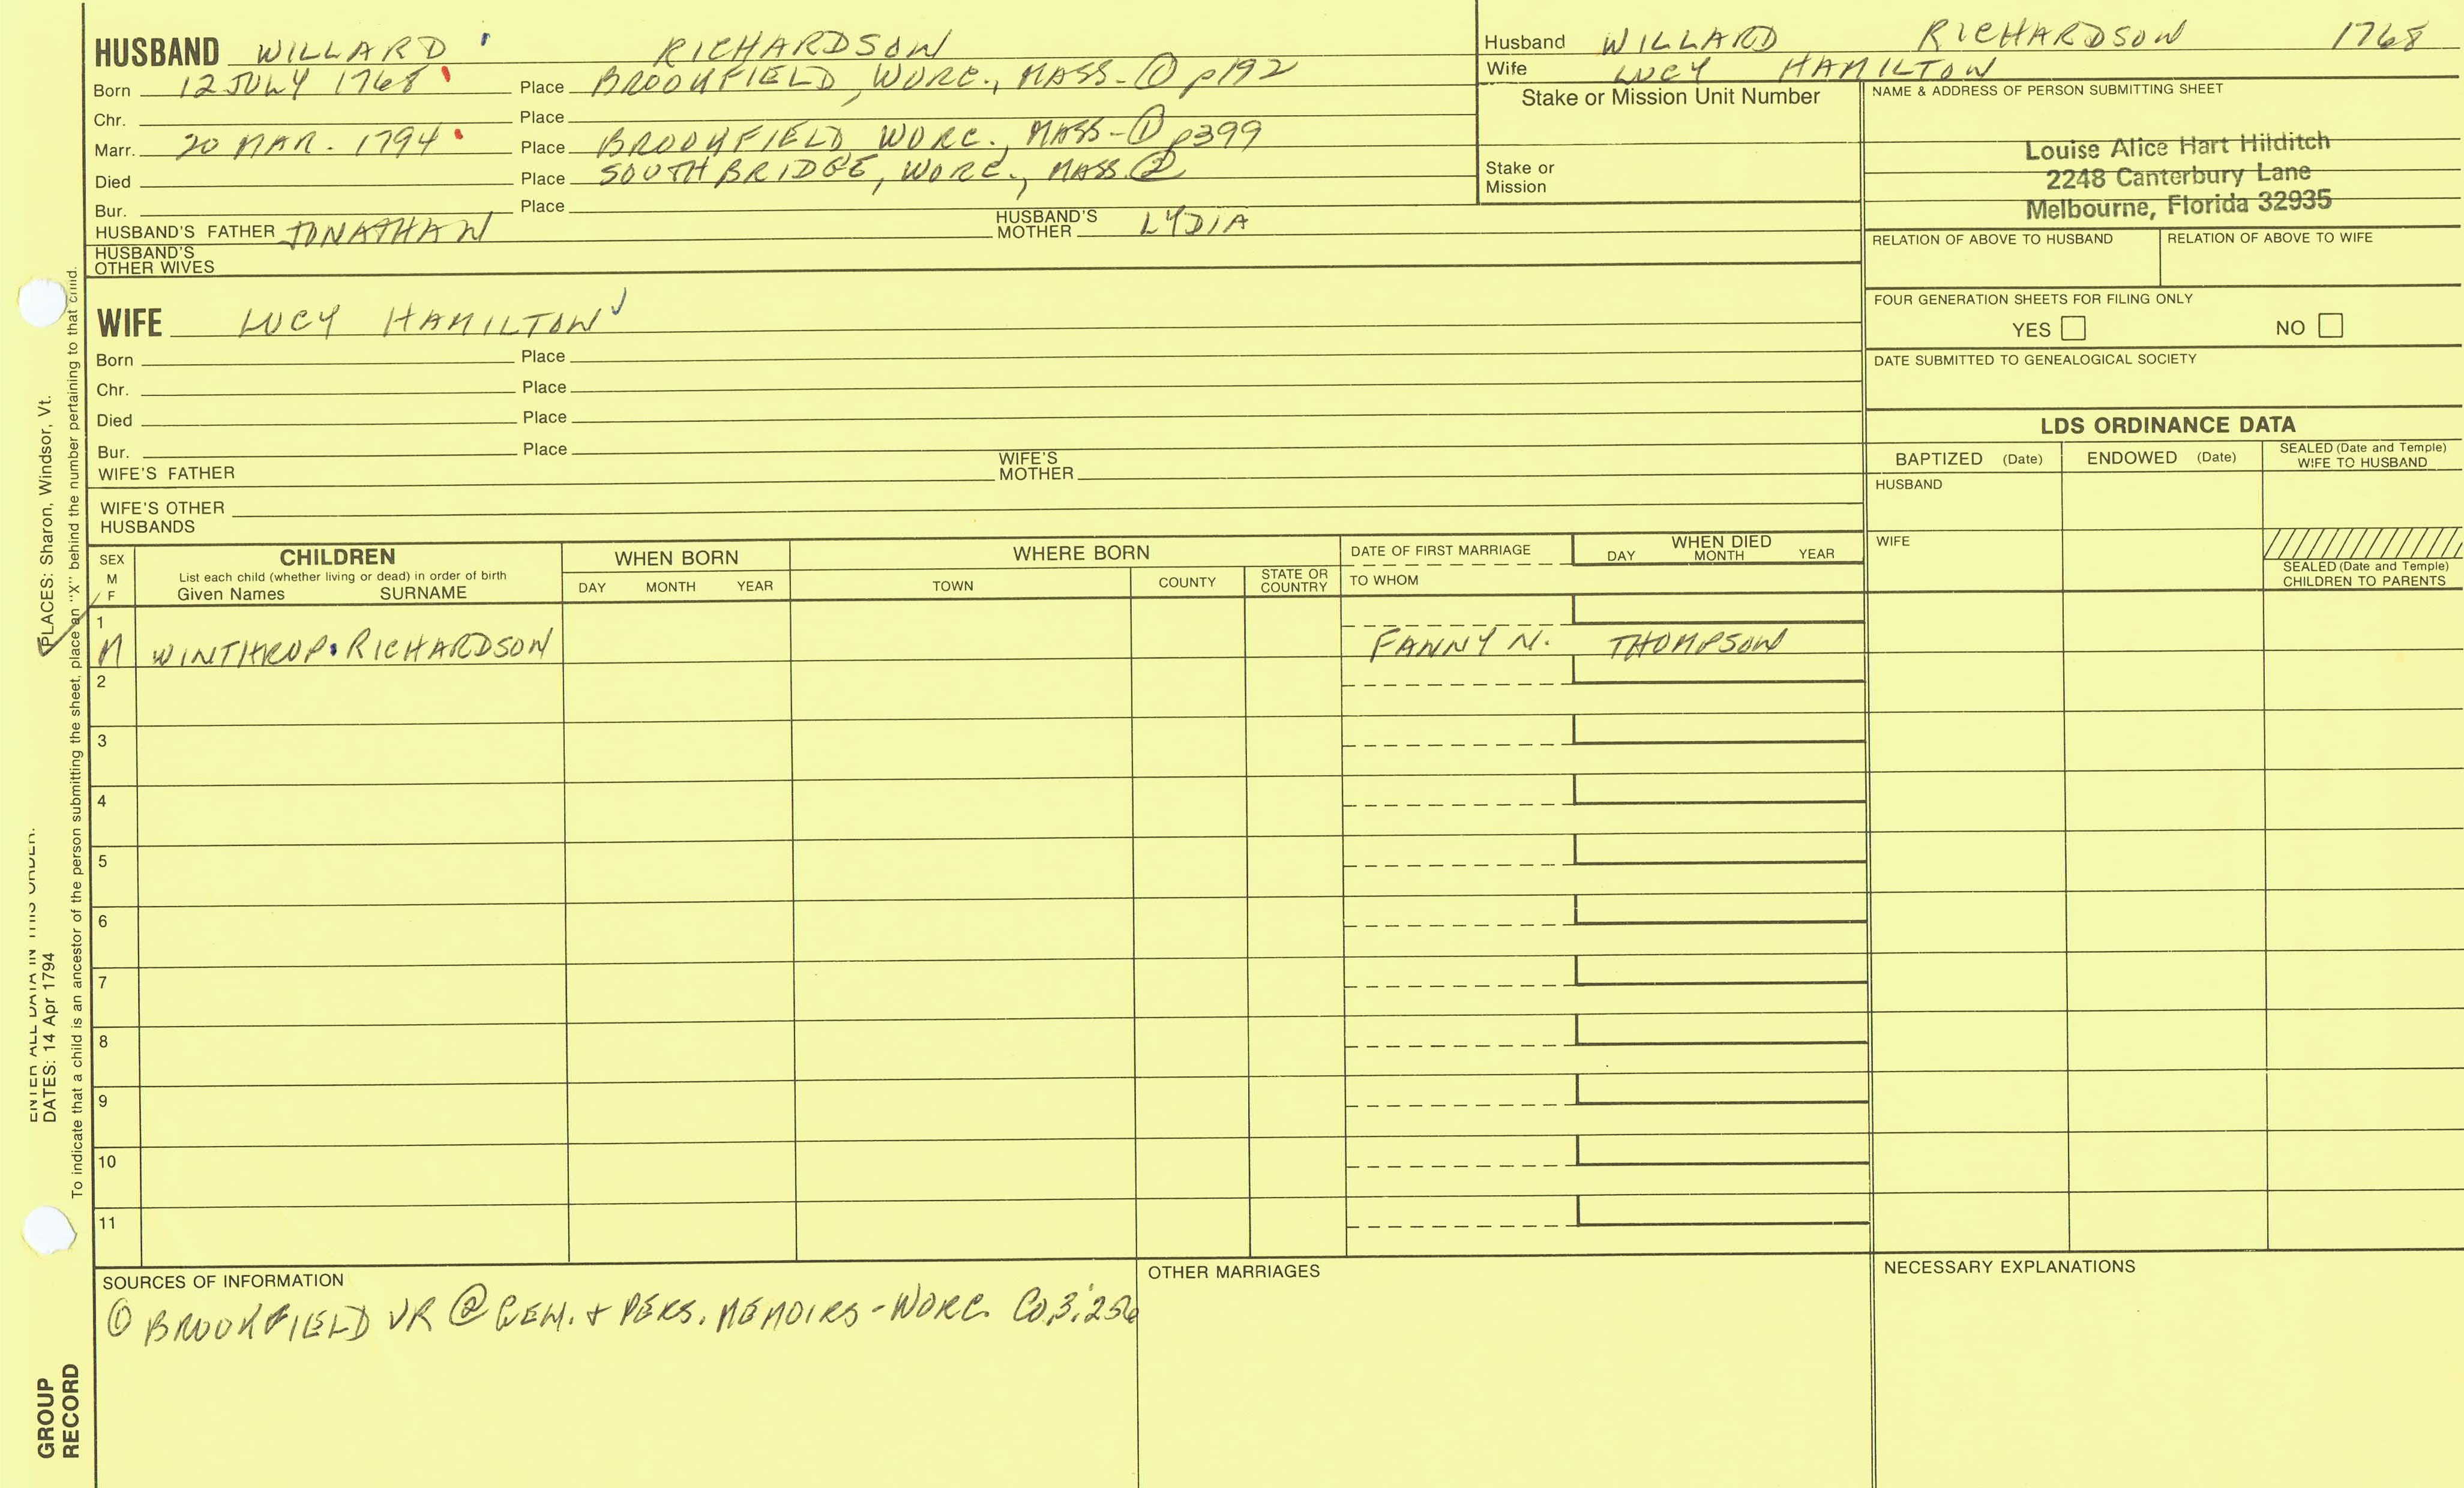 HUSBAND WILLARD RICHARDSON
Born 12 JULY 1768 Place BROOKFIELD, WORC., MASS-① p192
Chr. Place
Marr. 20 MAR. 1794 Place BROOKFIELD WORC., MASS-① p399
Died Place SOUTHBRIDGE, WORC., MASS ②
Bur. Place
HUSBAND'S FATHER JONATHAN HUSBAND'S MOTHER LYDIA
HUSBAND'S OTHER WIVES
Husband WILLARD RICHARDSON 1768
Wife LUCY HAMILTON
Stake or Mission Unit Number
Stake or Mission
NAME & ADDRESS OF PERSON SUBMITTING SHEET
Louise Alice Hart Hilditch
2248 Canterbury Lane
Melbourne, Florida 32935
RELATION OF ABOVE TO HUSBAND RELATION OF ABOVE TO WIFE
FOUR GENERATION SHEETS FOR FILING ONLY
YES NO
DATE SUBMITTED TO GENEALOGICAL SOCIETY
WIFE LUCY HAMILTON
Born Place
Chr. Place
Died Place
Bur. Place
WIFE'S FATHER WIFE'S MOTHER
WIFE'S OTHER HUSBANDS
LDS ORDINANCE DATA
BAPTIZED (Date) ENDOWED (Date) SEALED (Date and Temple) WIFE TO HUSBAND
HUSBAND
WIFE
SEALED (Date and Temple) CHILDREN TO PARENTS
SEX M F
CHILDREN
List each child (whether living or dead) in order of birth
Given Names SURNAME
WHEN BORN
DAY MONTH YEAR
WHERE BORN
TOWN COUNTY STATE OR COUNTRY
DATE OF FIRST MARRIAGE
TO WHOM
WHEN DIED
DAY MONTH YEAR
1
M WINTHROP RICHARDSON FANNY N. THOMPSON
2
3
4
5
6
7
8
9
10
11
SOURCES OF INFORMATION
① BROOKFIELD VR ② GEN. + PERS. MEMOIRS-WORC. Co, 3:256
OTHER MARRIAGES
NECESSARY EXPLANATIONS
ENTER ALL DATA IN THIS ORDER:
DATES: 14 Apr 1794
PLACES: Sharon, Windsor, Vt.
To indicate that a child is an ancestor of the person submitting the sheet, place an "X" behind the number pertaining to that child.
GROUP
RECORD